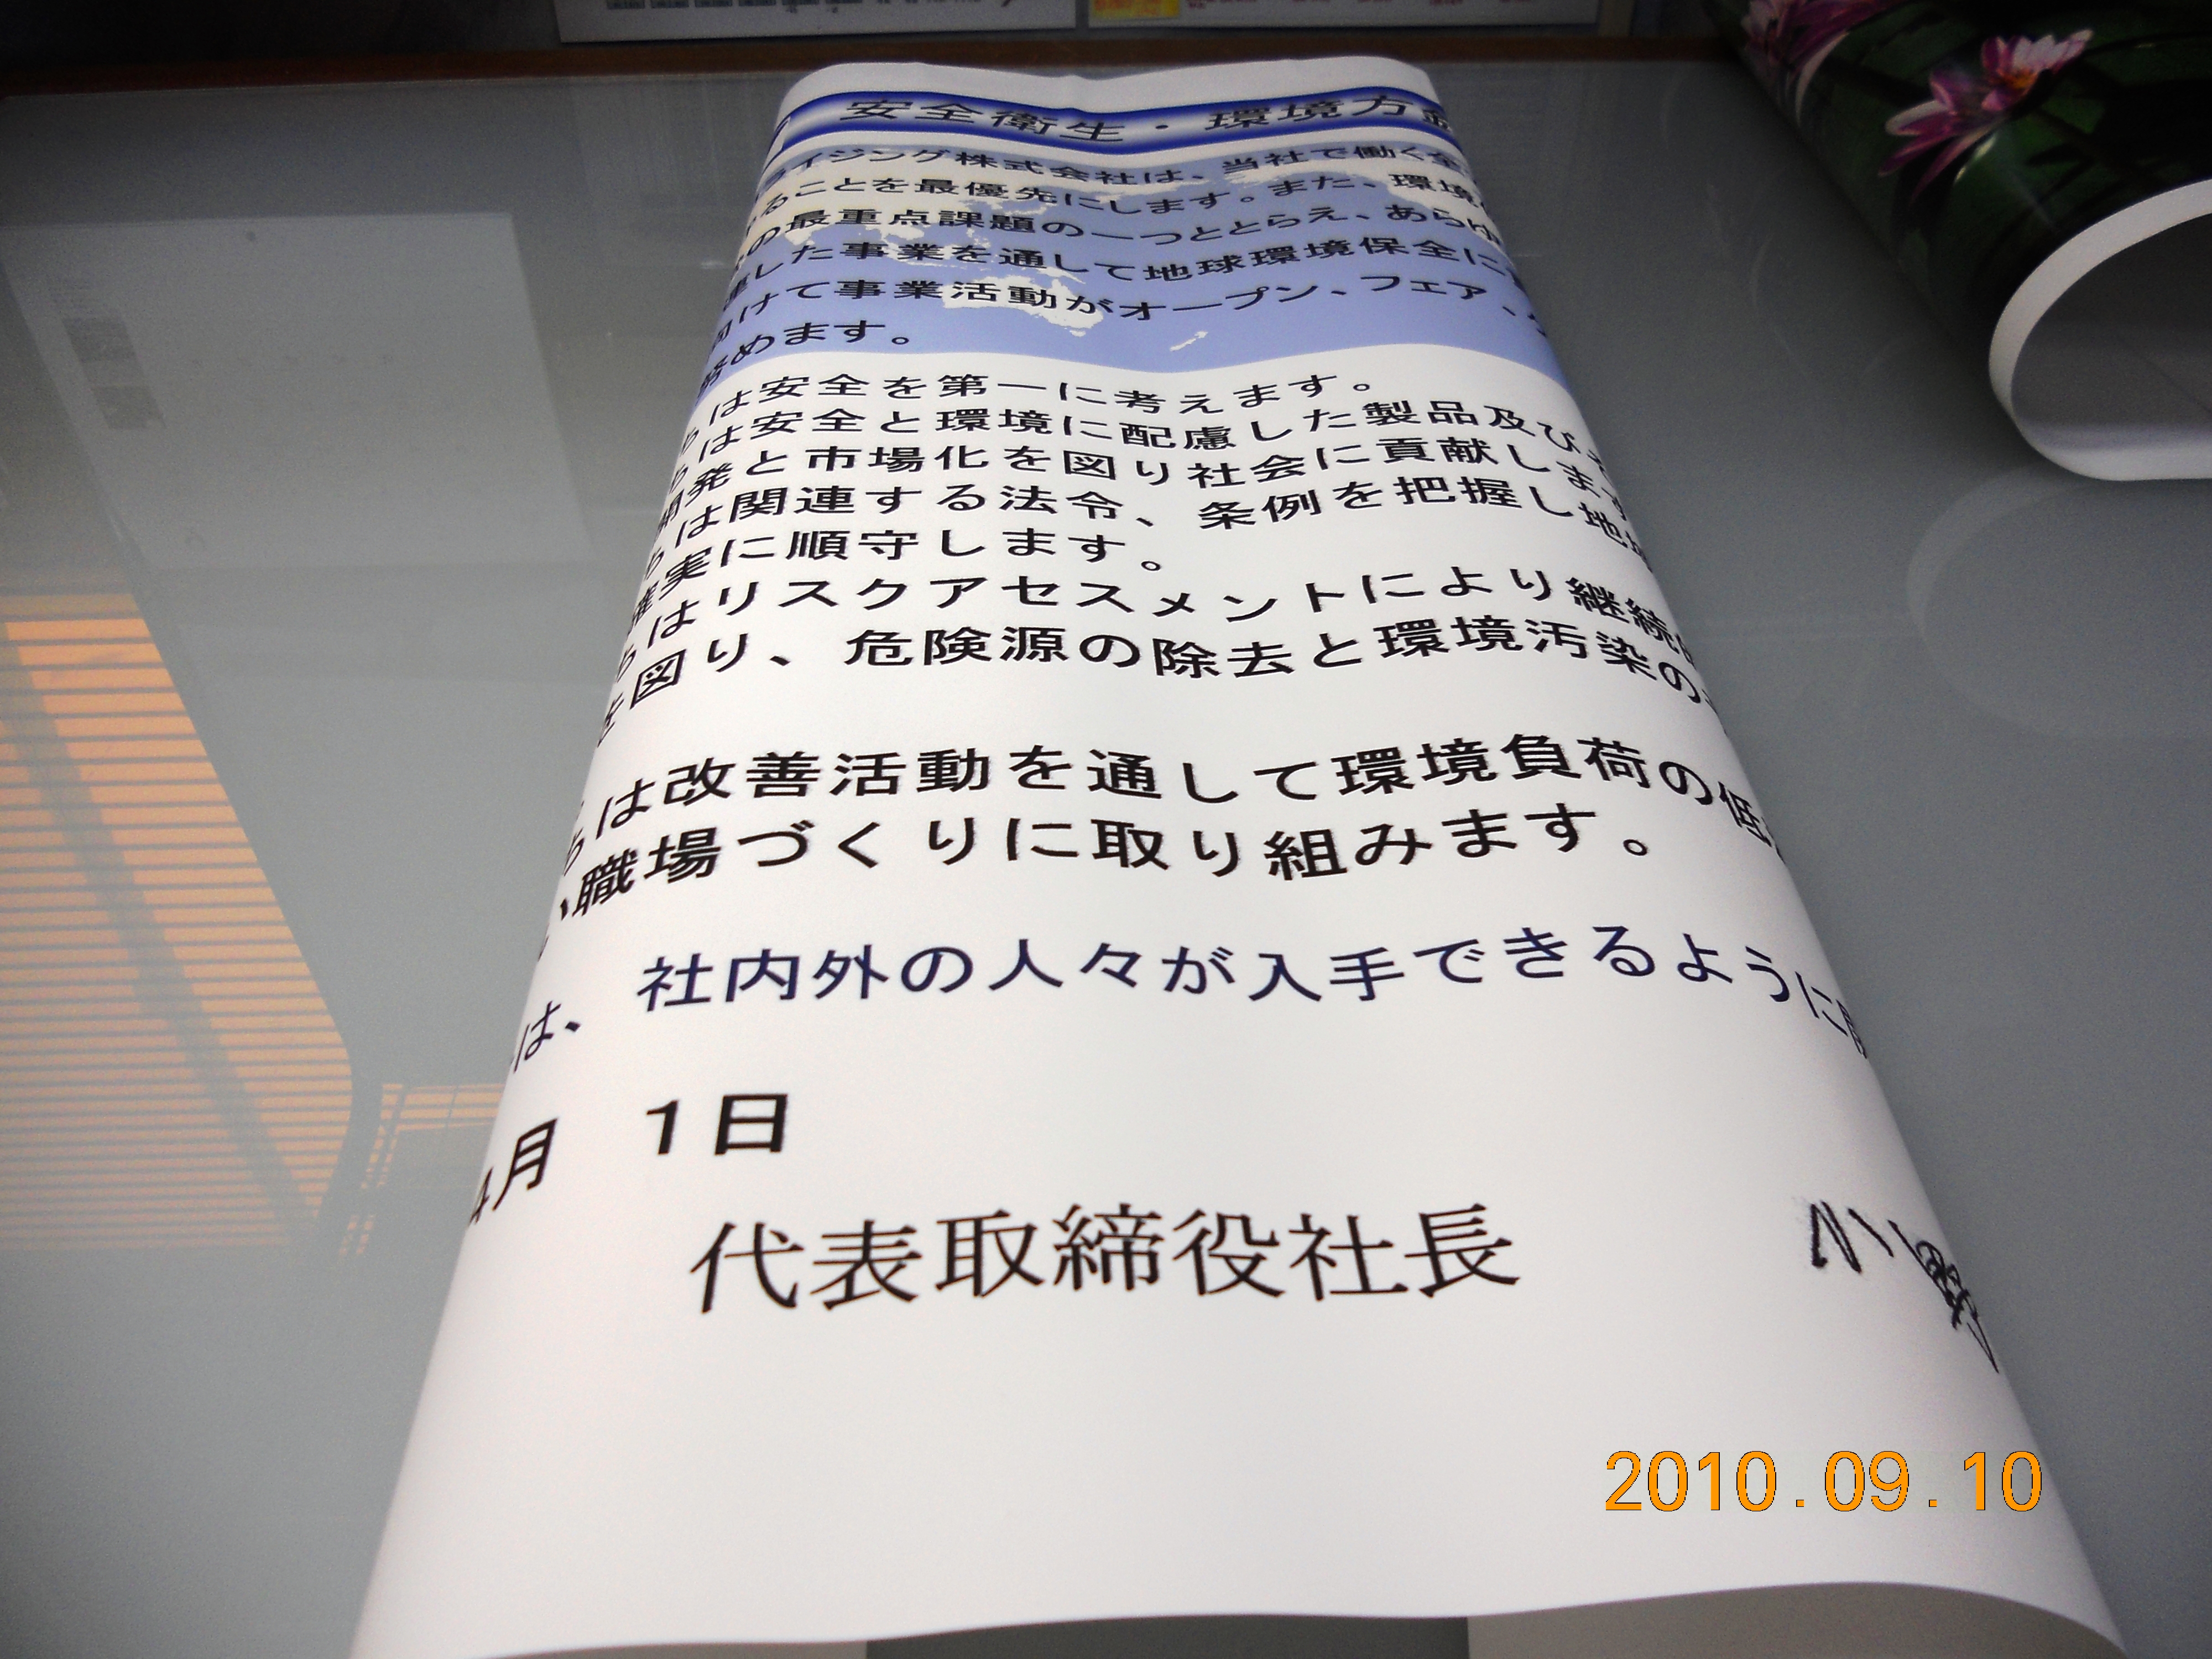 安全衛生・環境方針
イジング株式会社は、当社で働く全
ることを最優先にします。また、環境
の最重点課題の一つととらえ、あらゆ
した事業を通して地球環境保全に
けて事業活動がオープン、フェア、
めます。
は安全を第一に考えます。
は安全と環境に配慮した製品及び
開発と市場化を図り社会に貢献します
は関連する法令、条例を把握し地
確実に順守します。
はリスクアセスメントにより継続
を図り、危険源の除去と環境汚染の
は改善活動を通して環境負荷の低
職場づくりに取り組みます。
は、社内外の人々が入手できるように
4月 1日
代表取締役社長 小野
2010.09.10